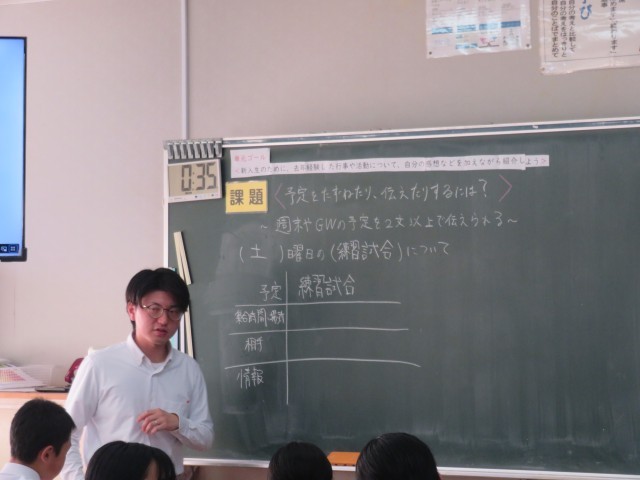 単元ゴール
<新入生のために、去年経験した行事や活動について、自分の感想などを加えながら紹介しよう>
0:35
課題
〈予定をたずねたり、伝えたりするには?〉
~週末やGWの予定を2文以上で伝えられる~
(土)曜日の(練習試合)について
予定 練習試合
相手
情報